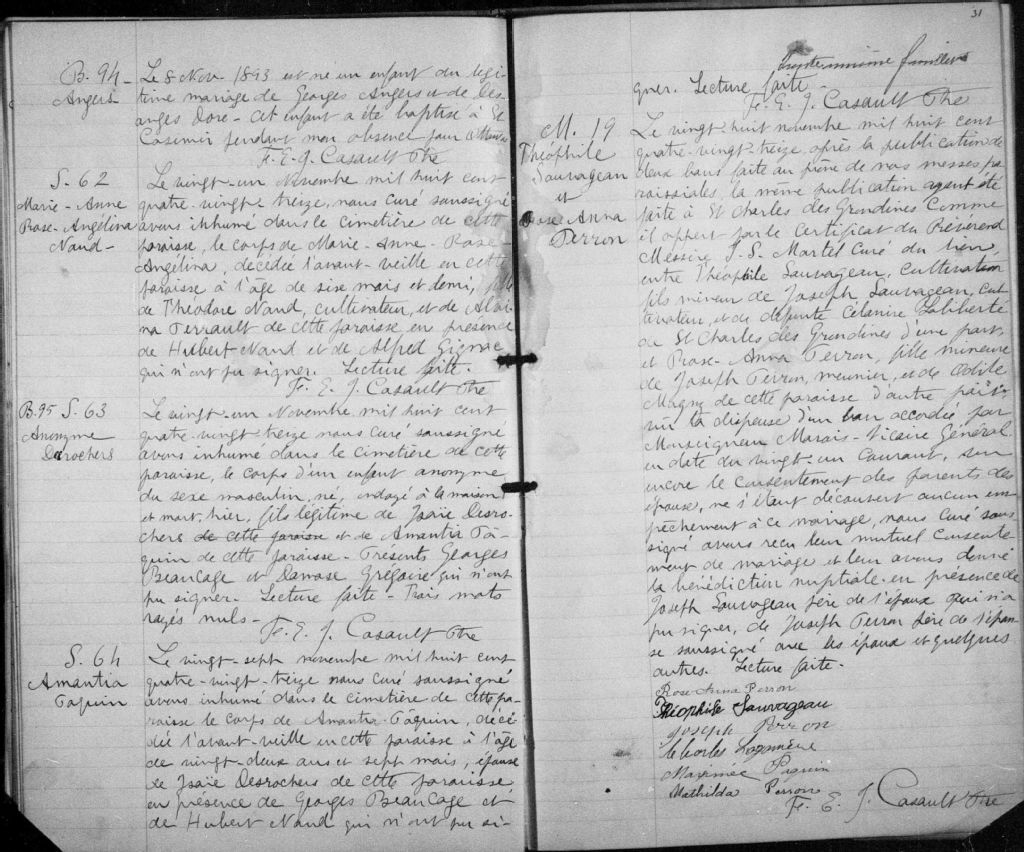 B. 94 -
Angers
Le 8 Nov. 1893 est né un enfant du légi-
time mariage de Georges Angers et de Des
anges Dore - cet enfant a été baptisé à St
Casimir pendant mon absence pour
F. E. J. Casault Ptre
S. 62
Marie - Anne
Rose - Angélina
Naud -
Le vingt-un Novembre mil huit cent
quatre-vingt-treize, nous curé soussigné
avons inhumé dans le cimetière de cette
paroisse, le corps de Marie-Anne-Rose-
Angélina, décédée l'avant-veille en cette
paroisse à l'âge de six mois et demi, fille
de Théodore Naud, cultivateur, et de Alvi-
na Perrault de cette paroisse en présence
de Hubert Naud et de Alfred Gignac
qui n'ont pu signer. Lecture faite.
F. E. J. Casault Ptre
B. 95 S. 63
Anonyme
Derochers
Le vingt-un Novembre mil huit cent
quatre-vingt-treize nous curé soussigné
avons inhumé dans le cimetière de cette
paroisse, le corps d'un enfant anonyme
du sexe masculin, né, ondoyé à la maison
et mort, hier, fils légitime de Isaïe Desro-
chers de cette paroisse et de Amantia Pa-
quin de cette paroisse - Présents Georges
Beaucage et Damase Grégoire qui n'ont
pu signer. Lecture faite - Trois mots
rayés nuls -
F. E. J. Casault Ptre
S. 64
Amantia
Paquin
Le vingt-sept novembre mil huit cent
quatre-vingt-treize nous curé soussigné
avons inhumé dans le cimetière de cette pa-
roisse le corps de Amantia Paquin, décé-
dée l'avant-veille en cette paroisse à l'âge
de vingt-deux ans et sept mois, épouse
de Isaïe Desrochers de cette paroisse
en présence de Georges Beaucage et
de Hubert Naud qui n'ont pu si-
31
trente unième feuillet
gner. Lecture faite
F. E. J. Casault Ptre
M. 19
Théophile
Sauvageau
et
Rose Anna
Perron
Le vingt-huit novembre mil huit cent
quatre-vingt-treize après la publication de
deux bans faite au prône de nos messes pa
roissiales la même publication ayant été
faite à St Charles des Grondines comme
il appert par le certificat du Révérend
Messire J. S. Martel Curé du lieu,
entre Théophile Sauvageau, cultivateur
fils mineur de Joseph Sauvageau, cul
tivateur, et de défunte Célanire Laliberté
de St Charles des Grondines d'une part,
et Rose-Anna Perron, fille mineure
de Joseph Perron, meunier, et de Odile
Magny de cette paroisse d'autre part.
vu la dispense d'un ban accordée par
Monseigneur Marois - Vicaire Général
en date du vingt-un courant, vu
encore le consentement des parents des
époux, ne s'étant découvert aucun em
pêchement à ce mariage, nous curé sous
signé avons reçu leur mutuel consente
ment de mariage et leur avons donné
la bénédiction nuptiale en présence de
Joseph Sauvageau père de l'époux qui n'a
pu signer, de Joseph Perron père de l'épou
se soussigné avec les époux et quelques
autres. Lecture faite.
Rose Anna Perron
Théophile Sauvageau
Joseph Perron
Maximée Paquin
Mathilda Perron
F. E. J. Casault Ptre